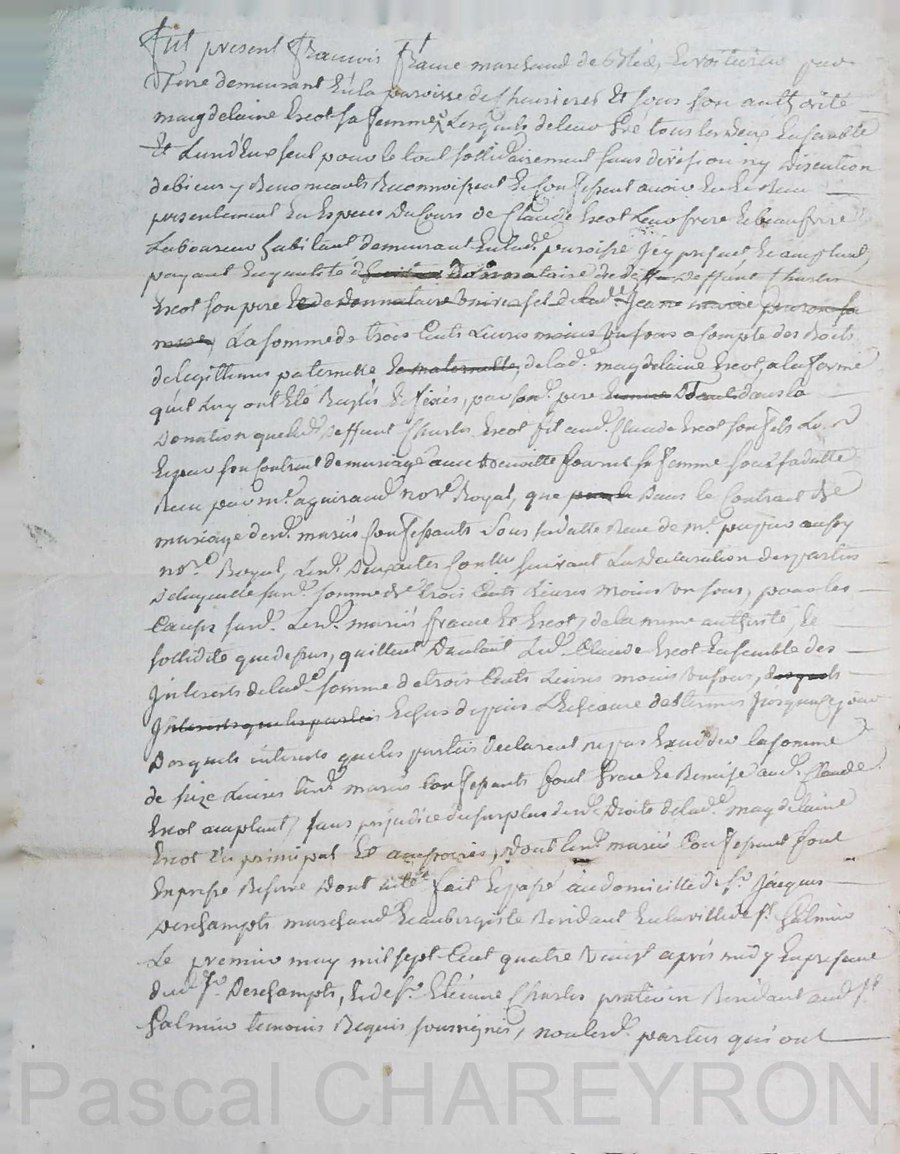 Fut present François frane marchand de bled, et voiturier par
Terre demeurant en la paroisse de Et sous son authorité
magdelaine Escot sa femme, Lesquels de leur gré tous les deux Ensemble
Et L'un d'Eux seul pour le tout sollidairement sans division ny Discution
de biens y Renonceants Reconnoissent et Confessent avoir Eu et Reçu
presentement En Especes Du Cours de Claude Escot Leur frere et beaufrere
Laboureur habitant demeurant En lad.e paroisse Jcy present, Et acceptant,
payant En qualité de Donnataire de deffunt Charles
Escot son pere et de Donnataire Universel de lad.e Jeanne marie
La somme de trois Cents Livres moins un sous a Compte des Droits
de legittimes paternelle et maternelle, de lad.e magdelaine Escot, a la forme
qu'ils Luy ont Eté Reglés et fixés, par son pere dans la
Donation que led. Deffunt Charles Escot fit aud. Claude Escot son fils
Et par son Contrat de mariage avec sa femme sous sa datte
Reçu par m.e aguiraud not.e Royal, que Dans le Contrat de
mariage desd. mariés Confessants sous sa datte Reçu de m.e aussy
not.e Royal, suivant La Declaration des parties
De laquelle susd. somme de trois Cents Livres moins un sous, pour les
Causes susd. Lesd. mariés frane Et Escot, de la même authorité, Et
sollidité que dessus, quittent Led. Claude Escot Ensemble des
Jnterets de lad.e somme de trois Cents Livres moins un sous,
Jnterets que les parties Echus depuis L'Echeance des termes Jusqu'a ce jour
Desquels interets que les parties declarent ne pas Exceder la somme
de seize Livres Lesd. mariés Confessants font Grace et Remise aud. Claude
Escot acceptant, sans prejudice du surplus desd. Droits de lad.e magdelaine
Escot En principal Et accessoires, Dont lesd. mariés Confessant font
Expresse Reserve Dont acte fait Et passé au domicille de s.r Jacques
Deschampts marchand Et aubergiste Residant En la ville de s.t Galmier
Le premier may mil sept Cent quatre Vingt après midy En presence
dud. s.r Deschampts, Et de s.r Etienne Charles praticien Residant aud. s.t
Galmier temoins Requis soussignés, non lesd. parties qui ont
Pascal CHAREYRON